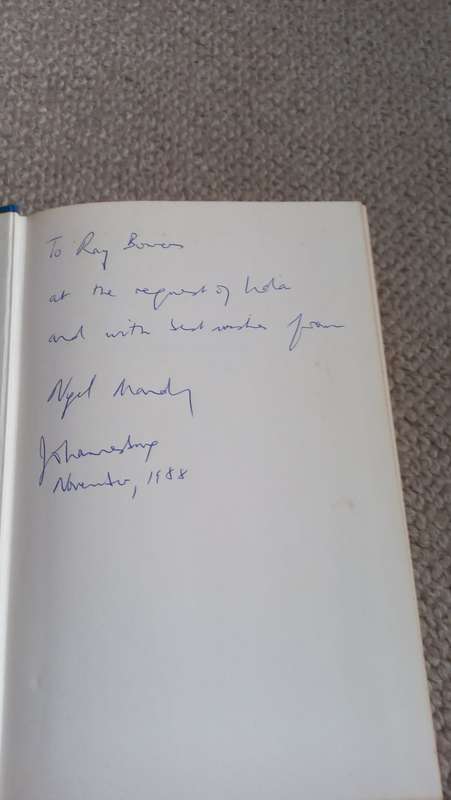 To Ray Bowers
at the request of Lola
and with best wishes from
Nigel Mandy
Johannesburg
November, 1988